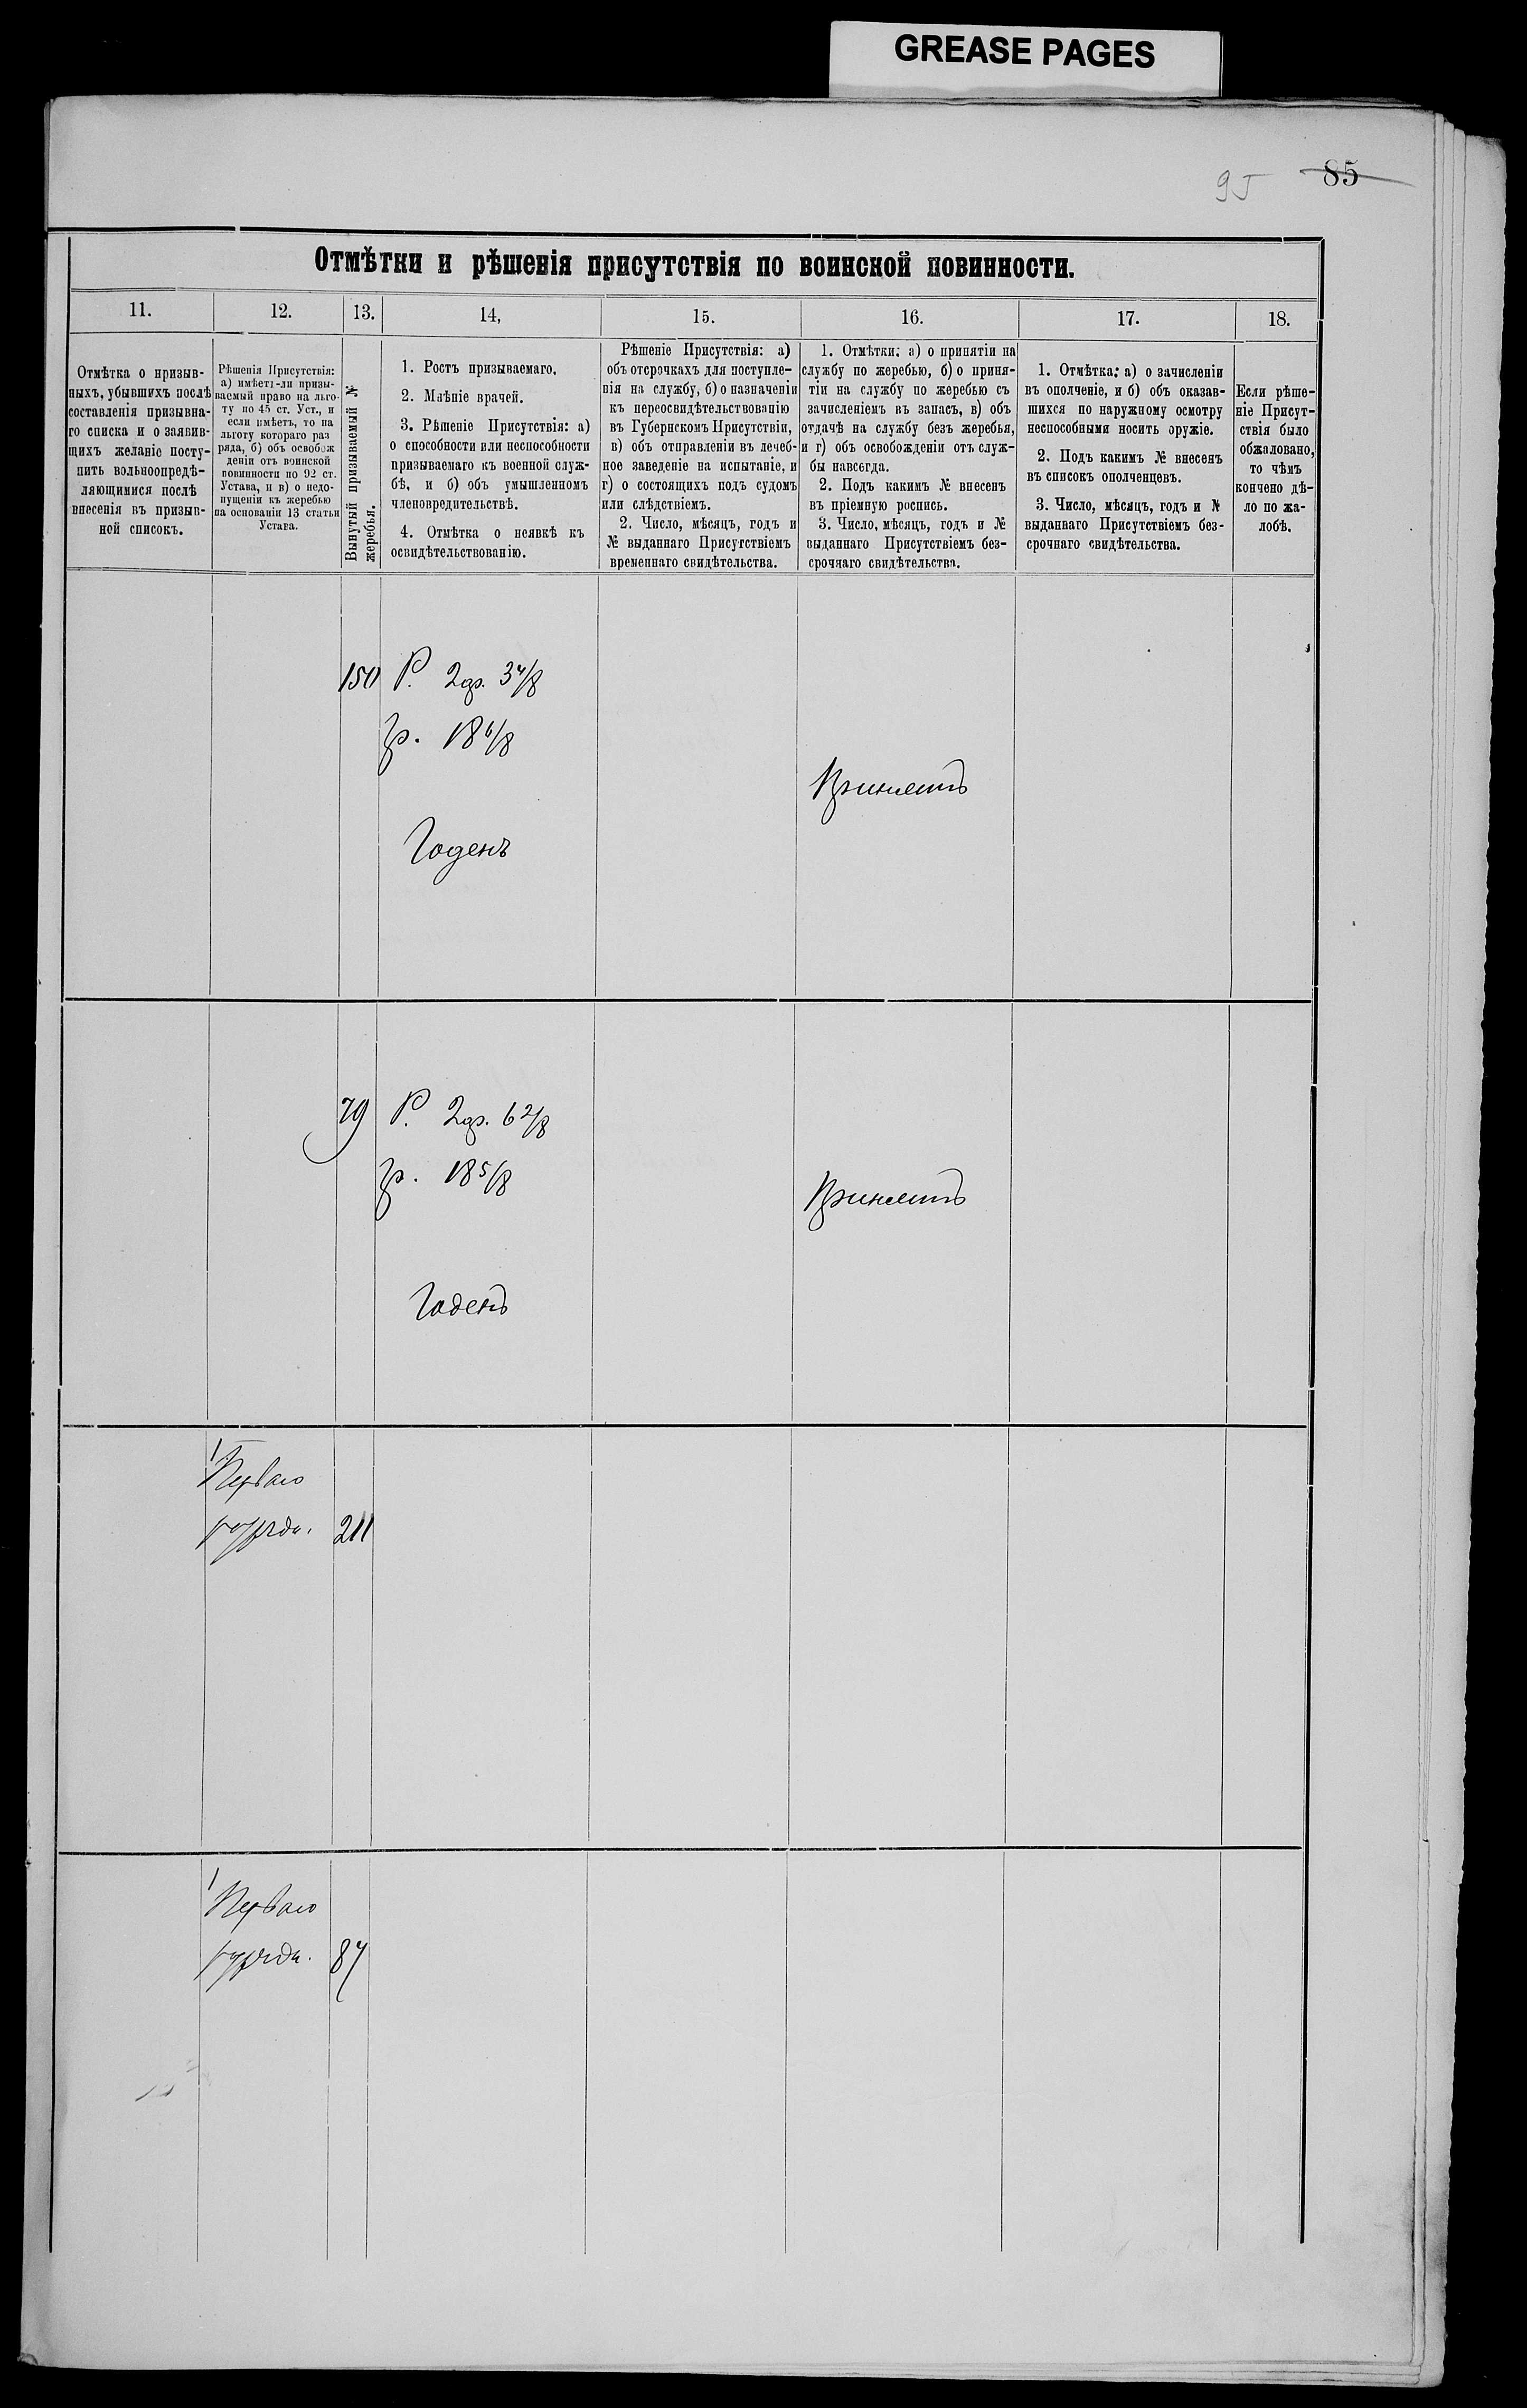 GREASE PAGES
95 85
Отмѣтки и рѣшенія присутствія по воинской повинности.
11. 12. 13. 14, 15. 16. 17. 18.
Отмѣтка о призыв-
ныхъ, убывшихъ послѣ
составленія призывна-
го списка и о заявив-
щихъ желаніе посту-
пить вольноопредѣ-
ляющимися послѣ
внесенія въ призыв-
ной списокъ.
Рѣшенія Присутствія:
а) имѣетъ-ли призы-
ваемый право на льго-
ту по 45 ст. Уст., и
если имѣетъ, то на
льготу котораго раз
ряда, б) объ освобож
деніи отъ воинской
повинности по 92 ст.
Устава, и в) о недо-
пущеніи къ жеребью
на основаніи 13 статьи
Устава.
Вынутый призываемый №
жеребья.
1. Ростъ призываемаго.
2. Мнѣніе врачей.
3. Рѣшеніе Присутствія: а)
о способности или неспособности
призываемаго къ военной служ-
бѣ, и б) объ умышленномъ
членовредительствѣ.
4. Отмѣтка о неявкѣ къ
освидѣтельствованію.
Рѣшеніе Присутствія: а)
объ отсрочкахъ для поступле-
нія на службу, б) о назначеніи
къ переосвидѣтельствованію
въ Губернскомъ Присутствіи,
в) объ отправленіи въ лечеб-
ное заведеніе на испытаніе, и
г) о состоящихъ подъ судомъ
или слѣдствіемъ.
2. Число, мѣсяцъ, годъ и
№ выданнаго Присутствіемъ
временнаго свидѣтельства.
1. Отмѣтки: а) о принятіи на
службу по жеребью, б) о приня-
тіи на службу по жеребью съ
зачисленіемъ въ запасъ, в) объ
отдачѣ на службу безъ жеребья,
и г) объ освобожденіи отъ служ-
бы навсегда.
2. Подъ какимъ № внесенъ
въ пріемную роспись.
3. Число, мѣсяцъ, годъ и №
выданнаго Присутствіемъ без-
срочнаго свидѣтельства.
1. Отмѣтка: а) о зачисленіи
въ ополченіе, и б) объ оказав-
шихся по наружному осмотру
неспособными носить оружіе.
2. Подъ какимъ № внесенъ
въ списокъ ополченцевъ.
3. Число, мѣсяцъ, годъ и №
выданнаго Присутствіемъ без-
срочнаго свидѣтельства.
Если рѣше-
ніе Присут-
ствія было
обжаловано,
то чѣмъ
кончено дѣ-
ло по жа-
лобѣ.
150 Р. 2 ар. 3 4/8
гр. 18 6/8
Принятъ
Годенъ
79 Р. 2 ар. 6 2/8
гр. 18 5/8
Принятъ
Годенъ
Перваго
разряда. 211
Перваго
разряда. 87